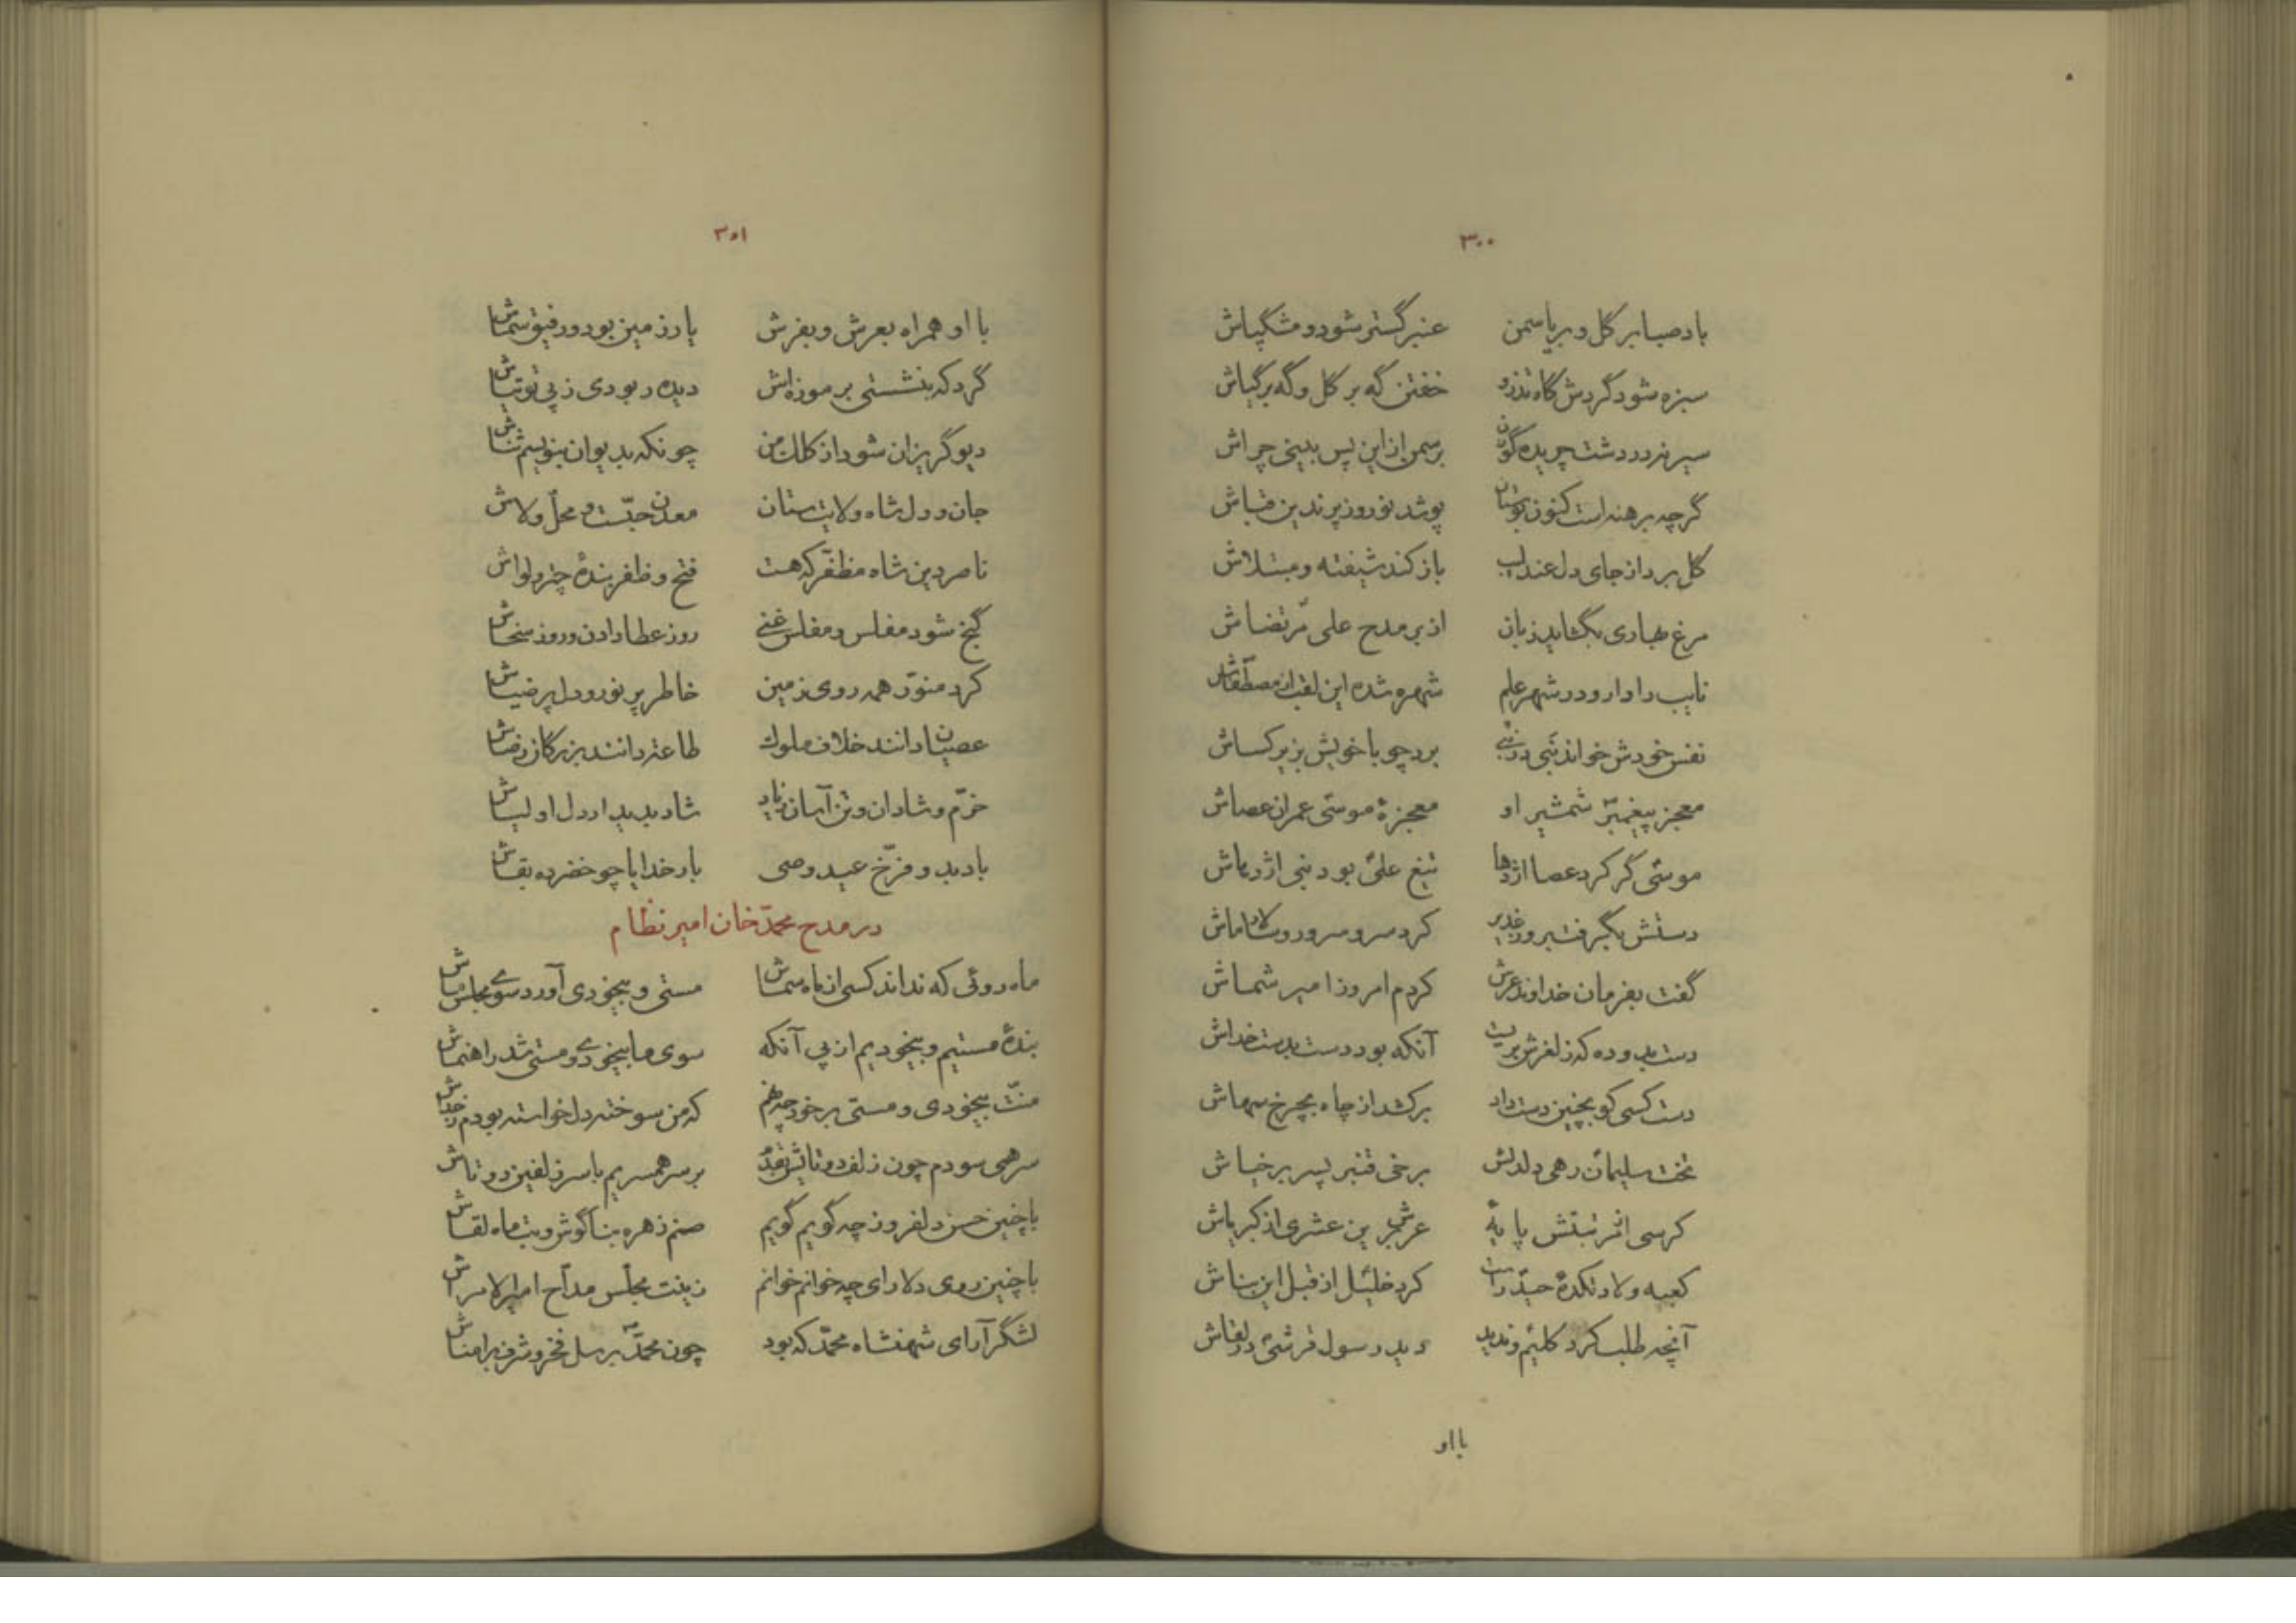 ۳۰۰
باد صبا بر گل و بر یاسمن عنبر گستر شود و مشگپاش
سبزه شود گردش گاه تذرو خفتن گه بر گل و گه بر گیاش
سیر نرد در دشت چریده گوزن بر سمن از این پس بینی چراش
گرچه برهنه است کنون بوستان پوشد نوروز پرندین قباش
گل برد از جای دل عندلیب باز کند شیفته و مبتلاش
مرغ بهاری بگشاید زبان از بر مدح علی مرتضاش
نایب دادار و در شهر علم شهره شده این لقب از مصطفاش
نفس خودش خواند نبی در نبی برد چو با خویش بزیر کساش
معجز پیغمبر شمشیر او معجزهٔ موسی عمران عصاش
موسی گر کرد عصا اژدها تیغ علی بود بنی اژدهاش
دستش بگرفت بروز غدیر کرد سر و سرور و
گفت بفرمان خداوند عرش کردم امروز امیر شماش
دست بدو ده که ز لغزش بریست آنکه بود دست بدست خداش
دست کسی کو بچنین دست داد برکشد از چاه بچرخ سهاش
تخت سلیمان رهی دلدلش برخی قنبر پسر برخیاش
کرسی از رتبتش پایهٔ عرش برین عشری از کبریاش
کعبه ولادتکدهٔ حیدر است کرد خلیل از قبل این بناش
آنچه طلب کرد کلیم و ندید دید رسول قرشی در لقاش
با او
۳۰۱
با او همراه بعرش و بفرش یار زمین بود و رفیق سماش
گرد که بنشستی بر موزه‌اش دیده ربودی ز پی توتیاش
دیو گریزان شود از کلک من چونکه بدیوان بنویسم ثناش
جان و دل شاه ولایت ستان معدن حبّست و محلّ ولاش
ناصر دین شاه مظفّر که هست فتح و ظفر بندهٔ چتر و لواش
گنج شود مفلس و مفلس غنی روز عطا دادن و روز سخاش
کرد منوّر همه روی زمین خاطر پر نور و دل پر ضیاش
عصیان دانند خلاف ملوک طاعت دانند بزرگان رضاش
خرّم و شادان و تن آسان زیاد شاد بدیدار دل اولیاش
باد بد و فرّخ عید وصی بار خدایا چو خضر ده بقاش
در مدح محمّد خان امیر نظام
ماه روئی که نداند کسی از ماه سماش مستی و بیخودی آورد سوی مجلس ماش
بندهٔ مستیم و بیخودیم از پی آنکه سوی ما بیخودی و مستی شد راهنماش
منّت بیخودی و مستی بر خود چه نهم که من سوخته دل خواسته بودم ز خداش
سر همی سودم چون زلف دو تاش بقدم بر سر همسریم با سر زلفین دو تاش
با چنین حسن دلفروز چه گویم گویم صنم زهره بناگوش و بت ماه لقاش
با چنین روی دلارای چه خوانم خوانم زینت مجلس مدّاح امیر الامراش
لشگر آرای شهنشاه محمّد که بود چون محمّد برسل فخر و شرف بر امناش